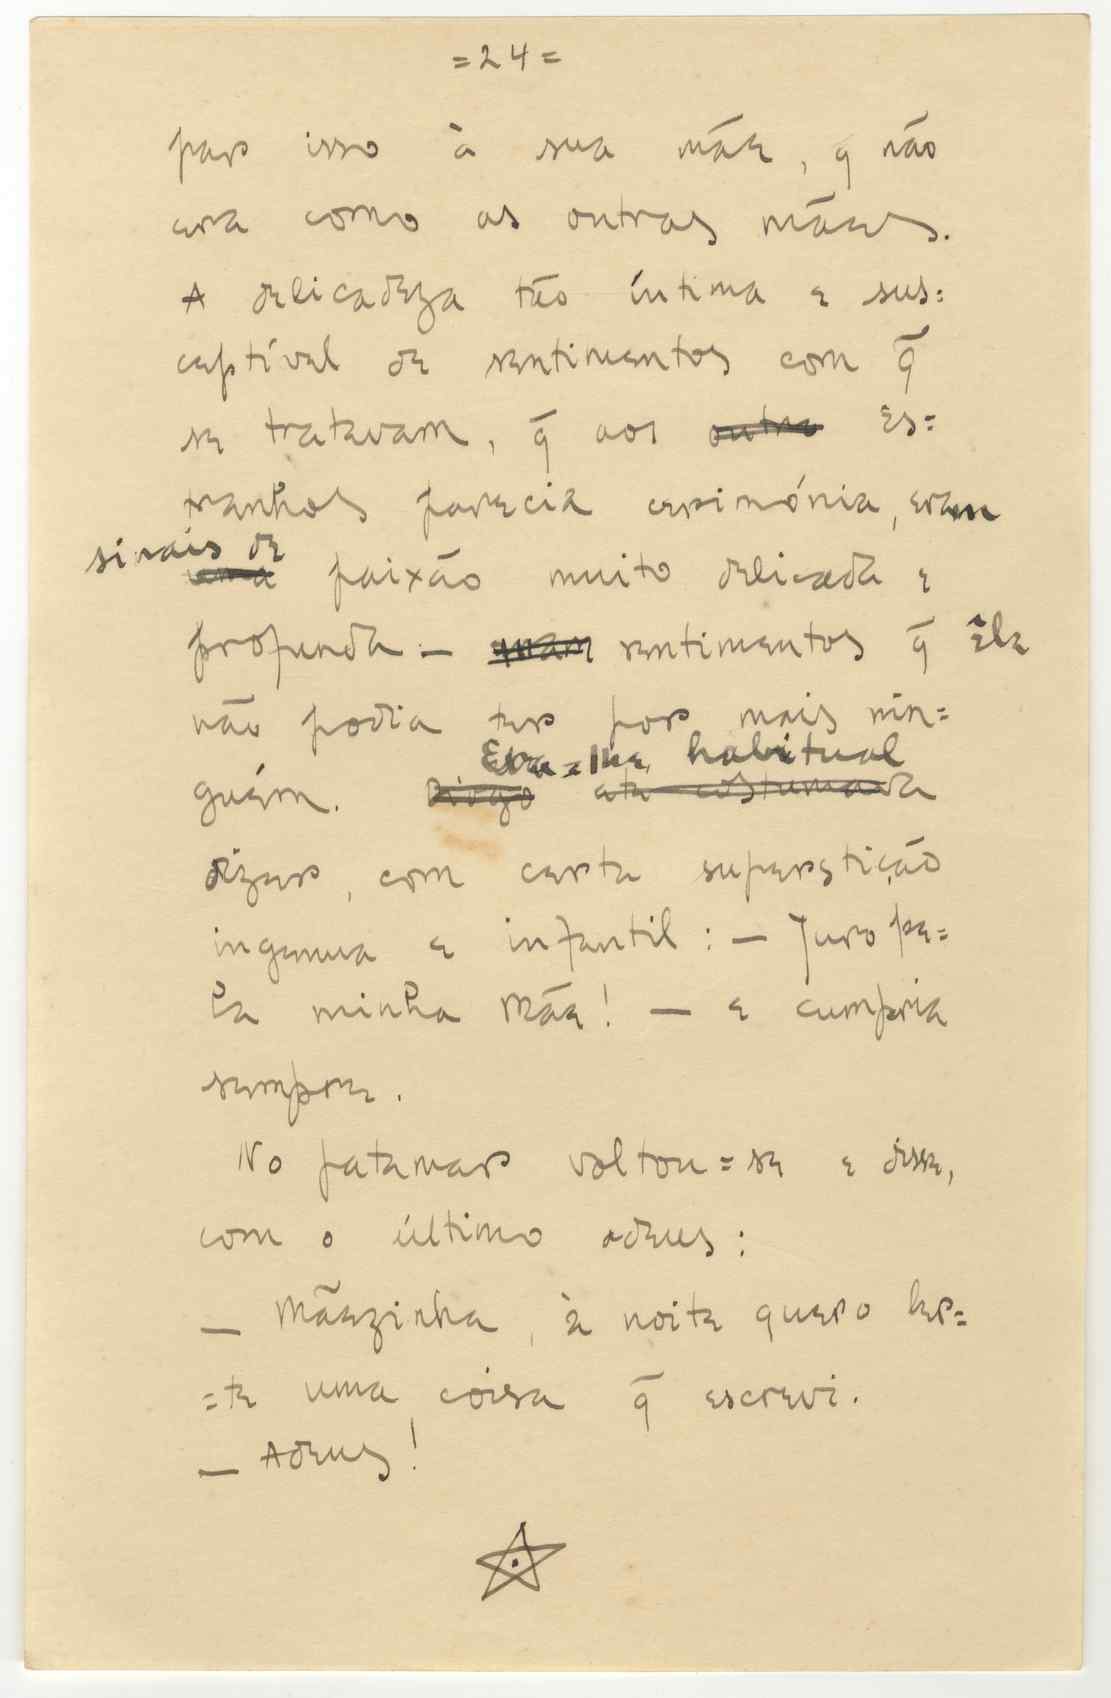 =24=
por isso à sua mãe, q não
era como as outras mães.
A delicadeza tão íntima e sus=
ceptível de sentimentos com q̃
se tratavam, q̃ aos outro es=
tranhos parecia cerimónia, eram
sinais de
uma paixão muito delicada e
profunda — sentimentos q̃ êle
não podia ter por mais nin=
Era=lhe habitual
guém. Diogo até costumada
dizer, com certa superstição
ingenua e infantil: — Juro pe=
la minha Mãe! — e cumpria
sempre.
No patamar voltou=se e disse,
com o último adeus:
— Mãezinha, à noite quero ler=
=te uma coisa q̃ escrevi.
— Adeus!